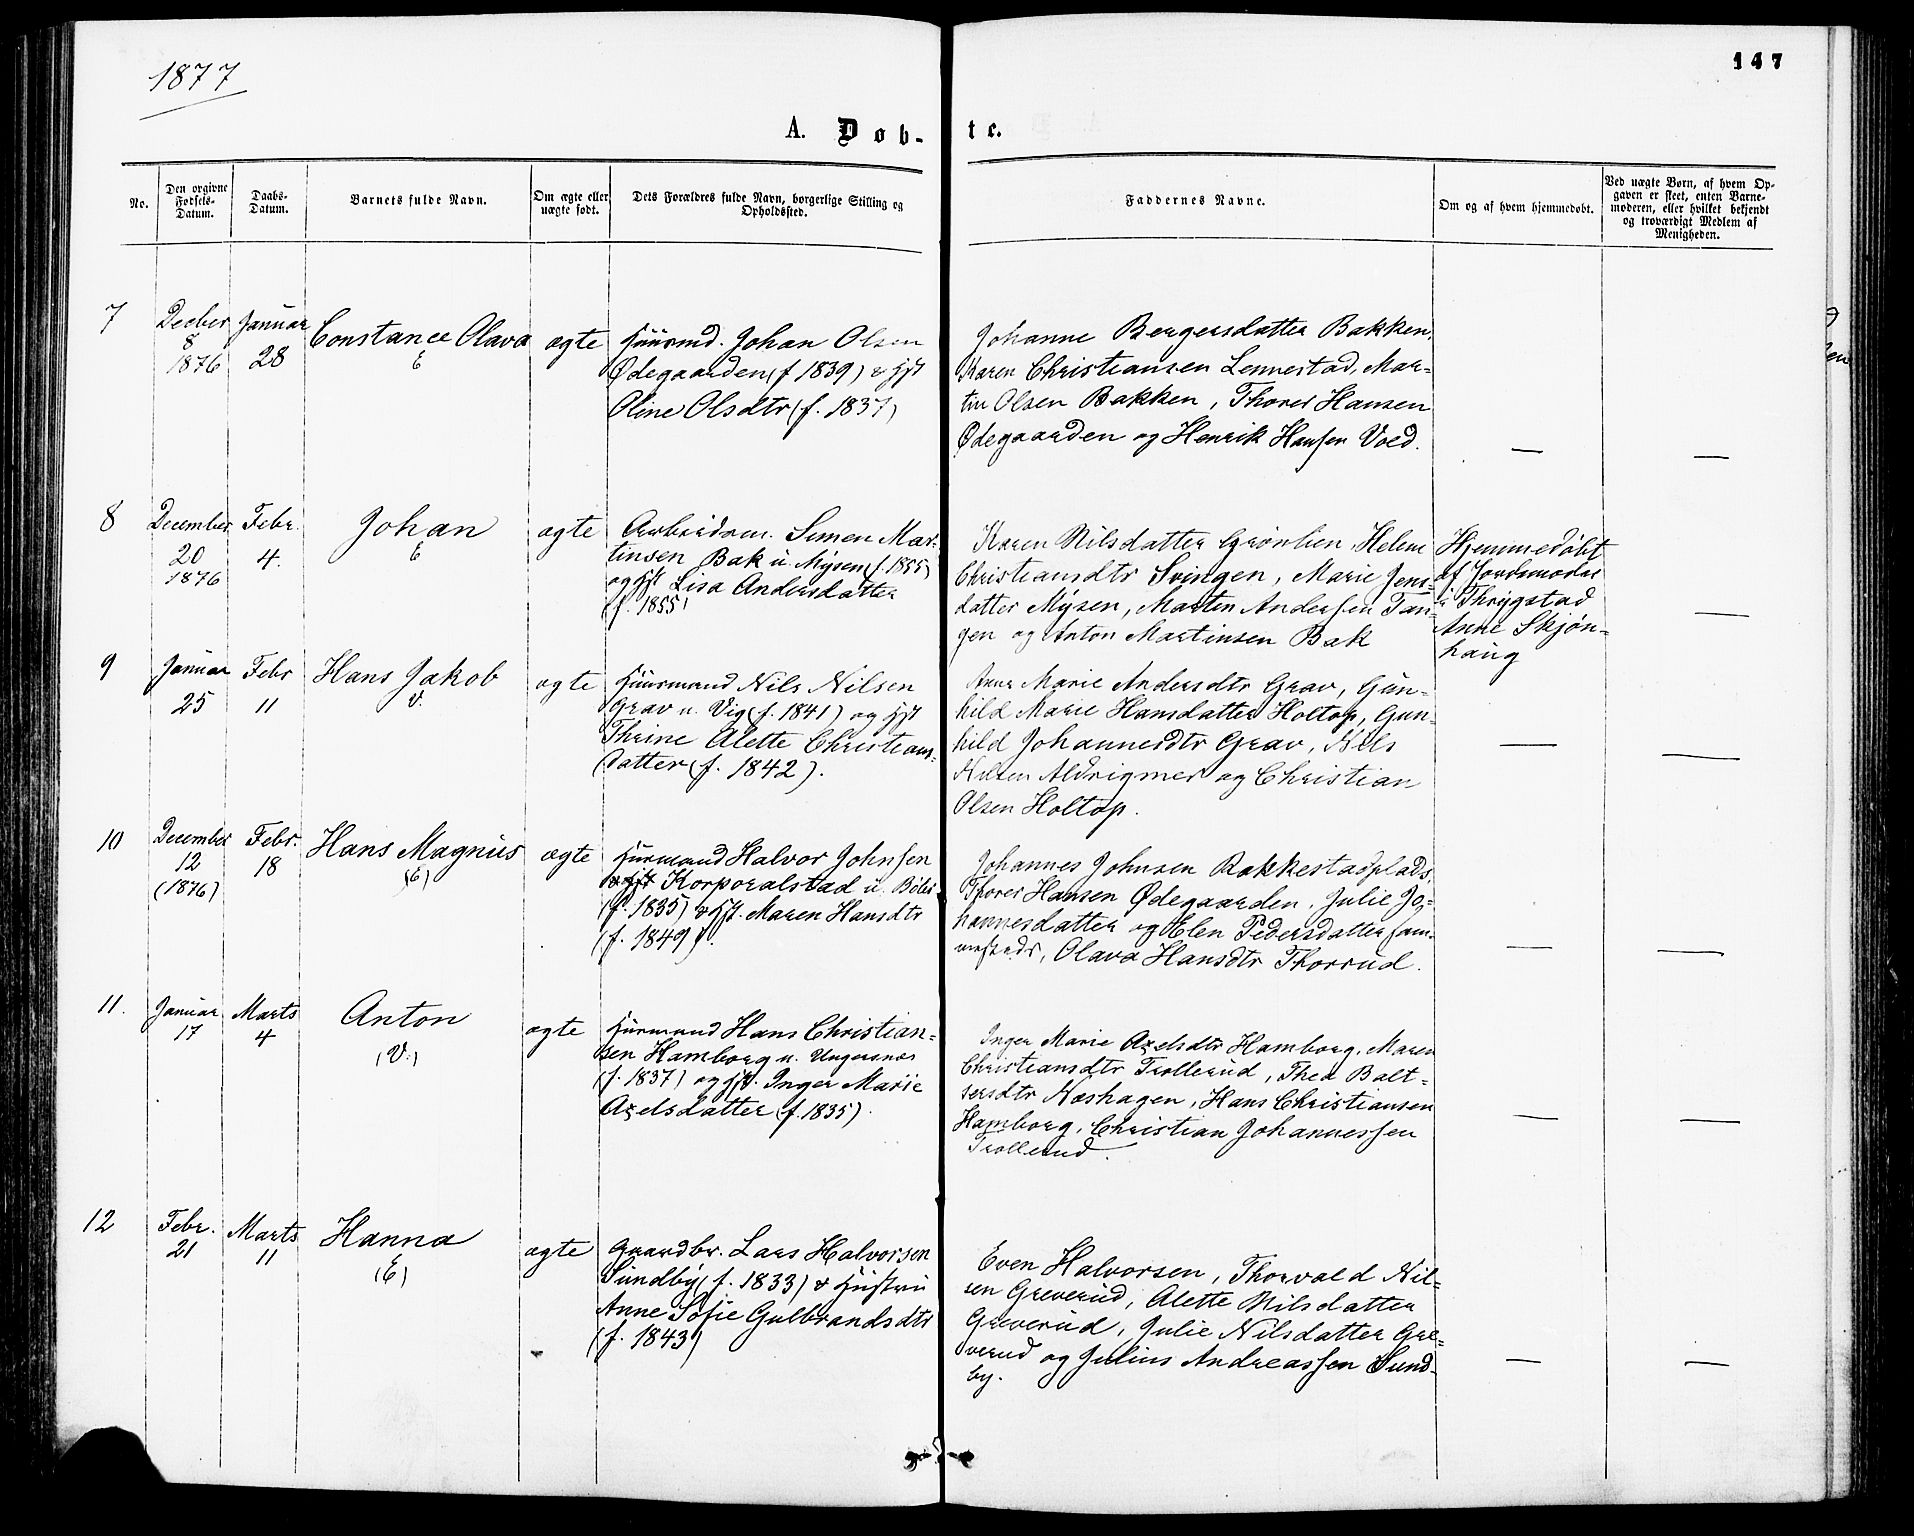 1877
147
A. Døb-
te.
No.
Den orgivne Fødsels-Datum.
Daabs-Datum.
Barnets fulde Navn.
Om ægte eller uægte født.
Dets Forældres fulde Navn, borgerlige Stilling og Opholdssted.
Faddernes Navne.
Om og af hvem hjemmedøbt.
Ved uægte Børn, af hvem Op-
gaven er skeet, enten Barne-
moderen, eller hvilket bekjendt
og troværdigt Medlem af
Menigheden.
7
Decber
8
1876
Januar
28
Constance Olava
E
ægte
Huusmd. Johan Olsen
Ødegaarden (f 1839) & Hst
Oline Olsdtr (f. 1837)
Johanne Bergersdatter Bakken,
Karen Christiansen Lennestad, Mar-
tin Olsen Bakken, Thorer Hansen
Ødegaarden og Henrik Hansen Voed.
—
—
8
December
20
1876
Febr.
4.
Johan
E
ægte
Arbeidsm. Simen Mar-
tinsen Bak u. Mysen (f. 1855)
og Hst Lisa Andersdatter
(f. 1855)
Karen Nilsdatter Grønlien, Helene
Christiansdtr Svingen, Marie Jens-
datter Mysen, Martin Andersen Tan-
gen og Anton Martinsen Bak
Hjemmedøbt
af Jordmoder
i Thrygstad
Anne Skjøn-
haug
—
9
Januar
25
Febr
11
Hans Jakob
V.
ægte
Huusmand Nils Nilsen
Grav u. Vig (f. 1841) og Hst
Thrine Alette Christians-
datter (f. 1842).
Anne Marie Andersdtr Grav, Gun-
hild Marie Hansdatter Holtop, Gun-
hild Johannesdtr Grav, Nils
Nilsen Aldrigmer og Christian
Olsen Holtop.
—
—
10
December
12
(1876)
Febr.
18
Hans Magnus
(E)
ægte
Husmand Halvor Johnsen
Korporalstad u.
(f. 1835) & Hst. Maren Hansdtr
(f. 1849).
Johannes Johnsen Rakkestadplads,
Thorer Hansen Ødegaarden, Julie Jo-
hannesdatter og Elen Pedersdatter sam-
mesteds, Olava Hansdtr Thorrud.
—
—
11.
Januar
17
Marts
4
Anton
(V.)
ægte
Husmand Hans Christian-
sen Hamborg u. Ungersnæs
(f. 1837) og Hst. Inger Marie
Axelsdatter (f. 1835).
Inger Marie Axelsdtr Hamborg, Maren
Christiansdtr Trollerud, Thea Balt-
sersdtr Næshagen, Hans Christiansen
Hamborg, Christian Johannessen
Trollerud.
—
—
12
Febr.
21
Marts
11
Hanna
(E)
ægte
Gaardbr. Lars Halvorsen
Sundby (f. 1833) & Hustru
Anne Sofie Gulbrandsdtr
(f. 1843)
Even Halvorsen, Thorvald Nil-
sen Greverud, Alette Nilsdatter
Greverud, Julie Nilsdatter Gre-
verud og Julius Andreassen Sund-
by.
—
—